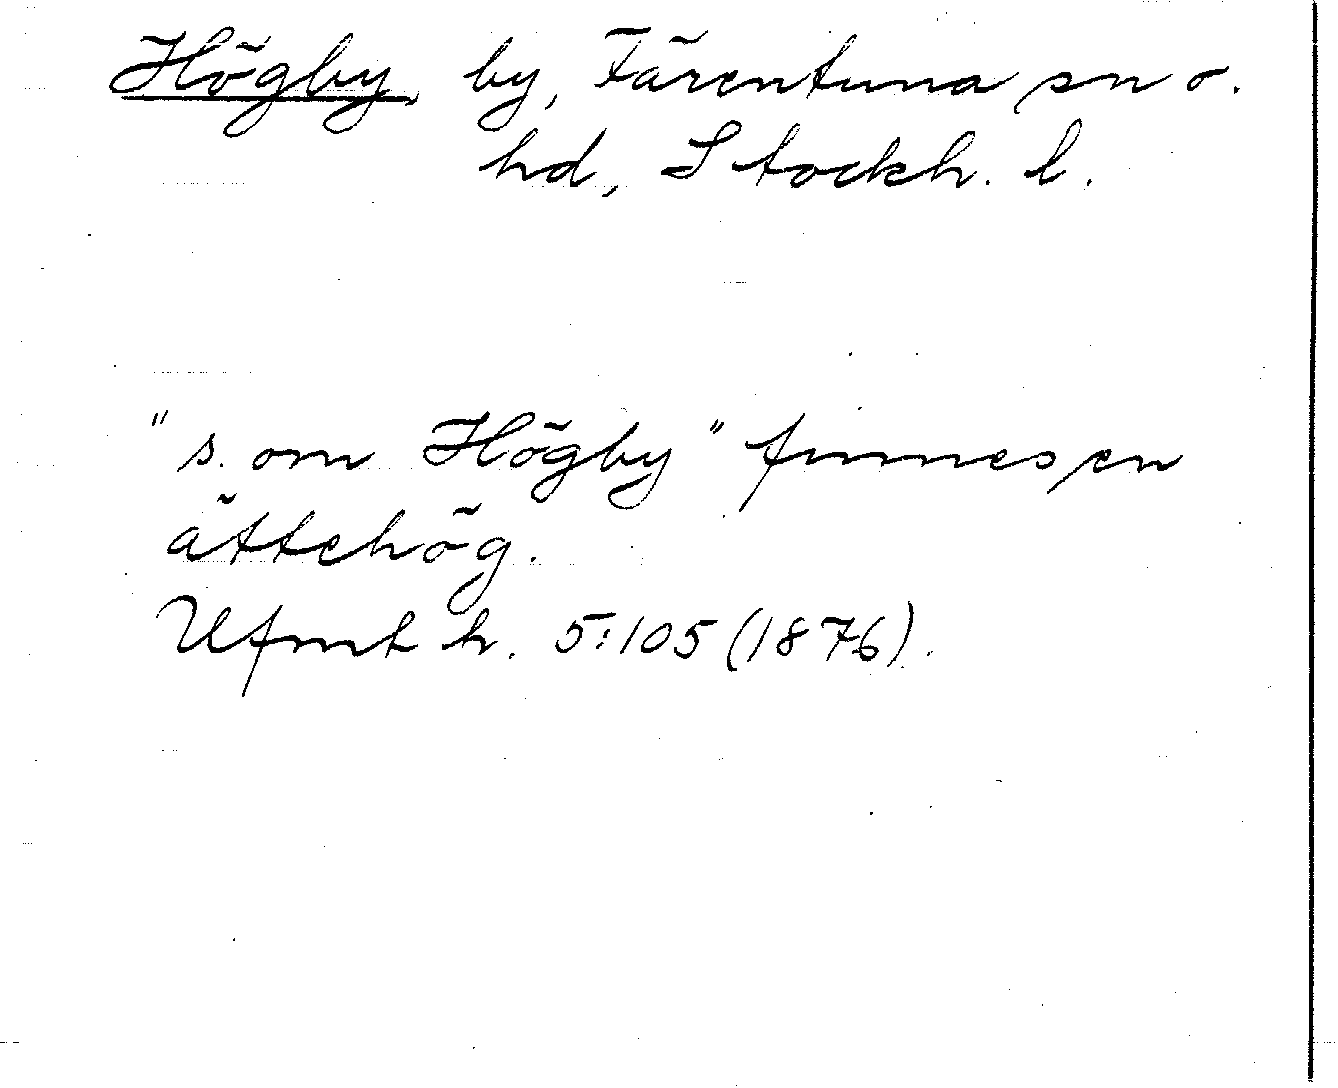 Högby, by, Färentuna sn o.
hd, Stockh. l.
"s. om Högby" finnes en
ättehög.
Ufmt h. 5:105 (1876).